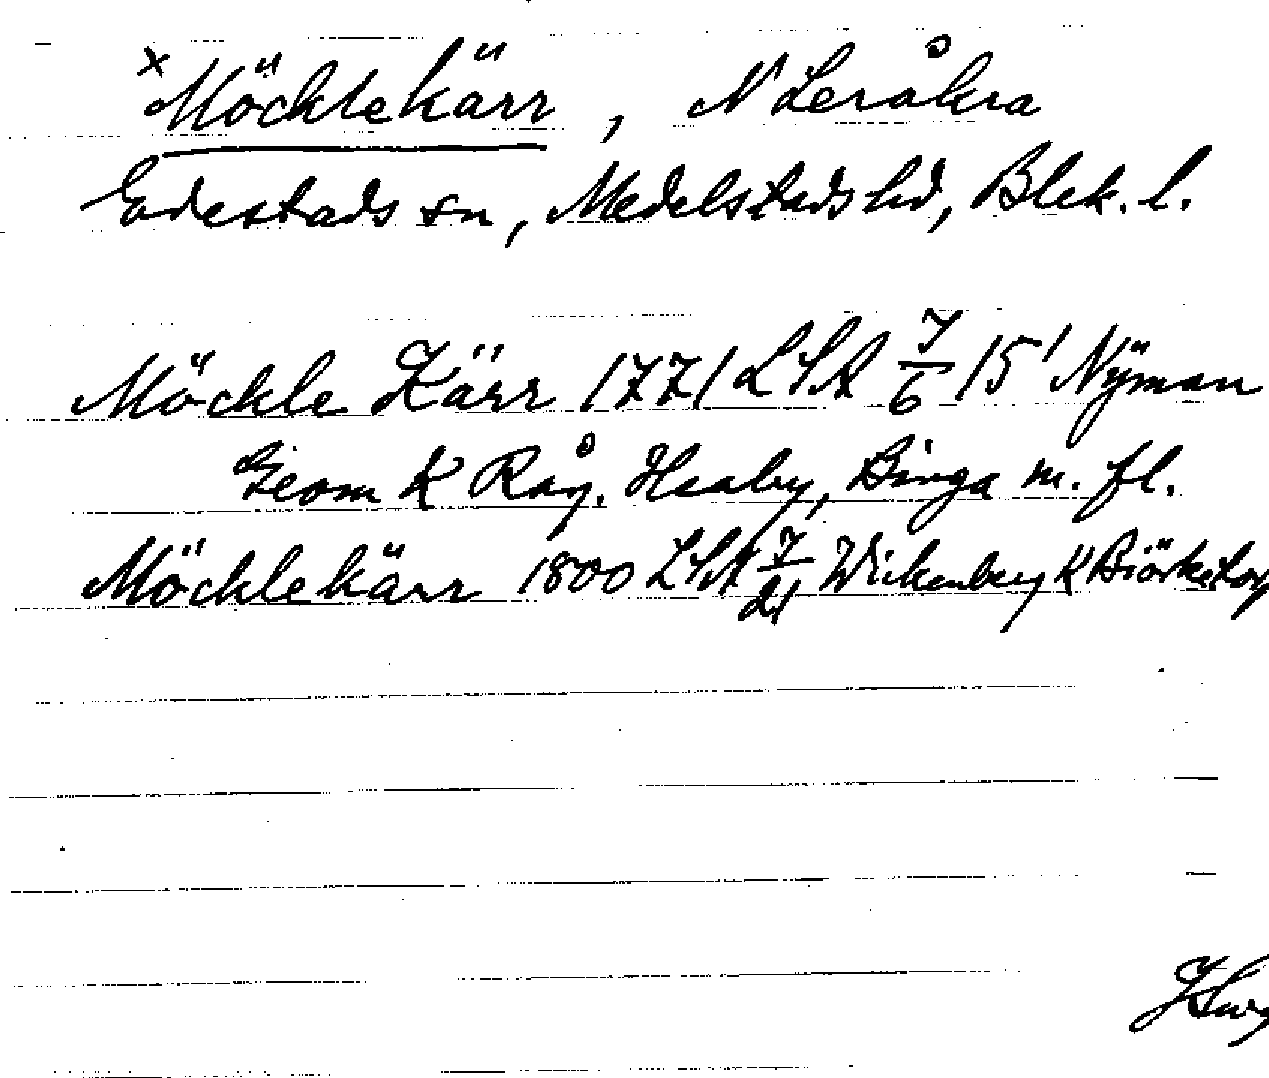 x Möcklekärr, N Leråkra
Edestads sn, Medelstads hd, Blek. l.
Möckle Kärr 1771 LSA 7/6 15' Nyman
Geom K Råg. Heaby, Binga m. fl.
Möcklekärr 1800 LSA 7/21 Wickenberg K Biörketorp